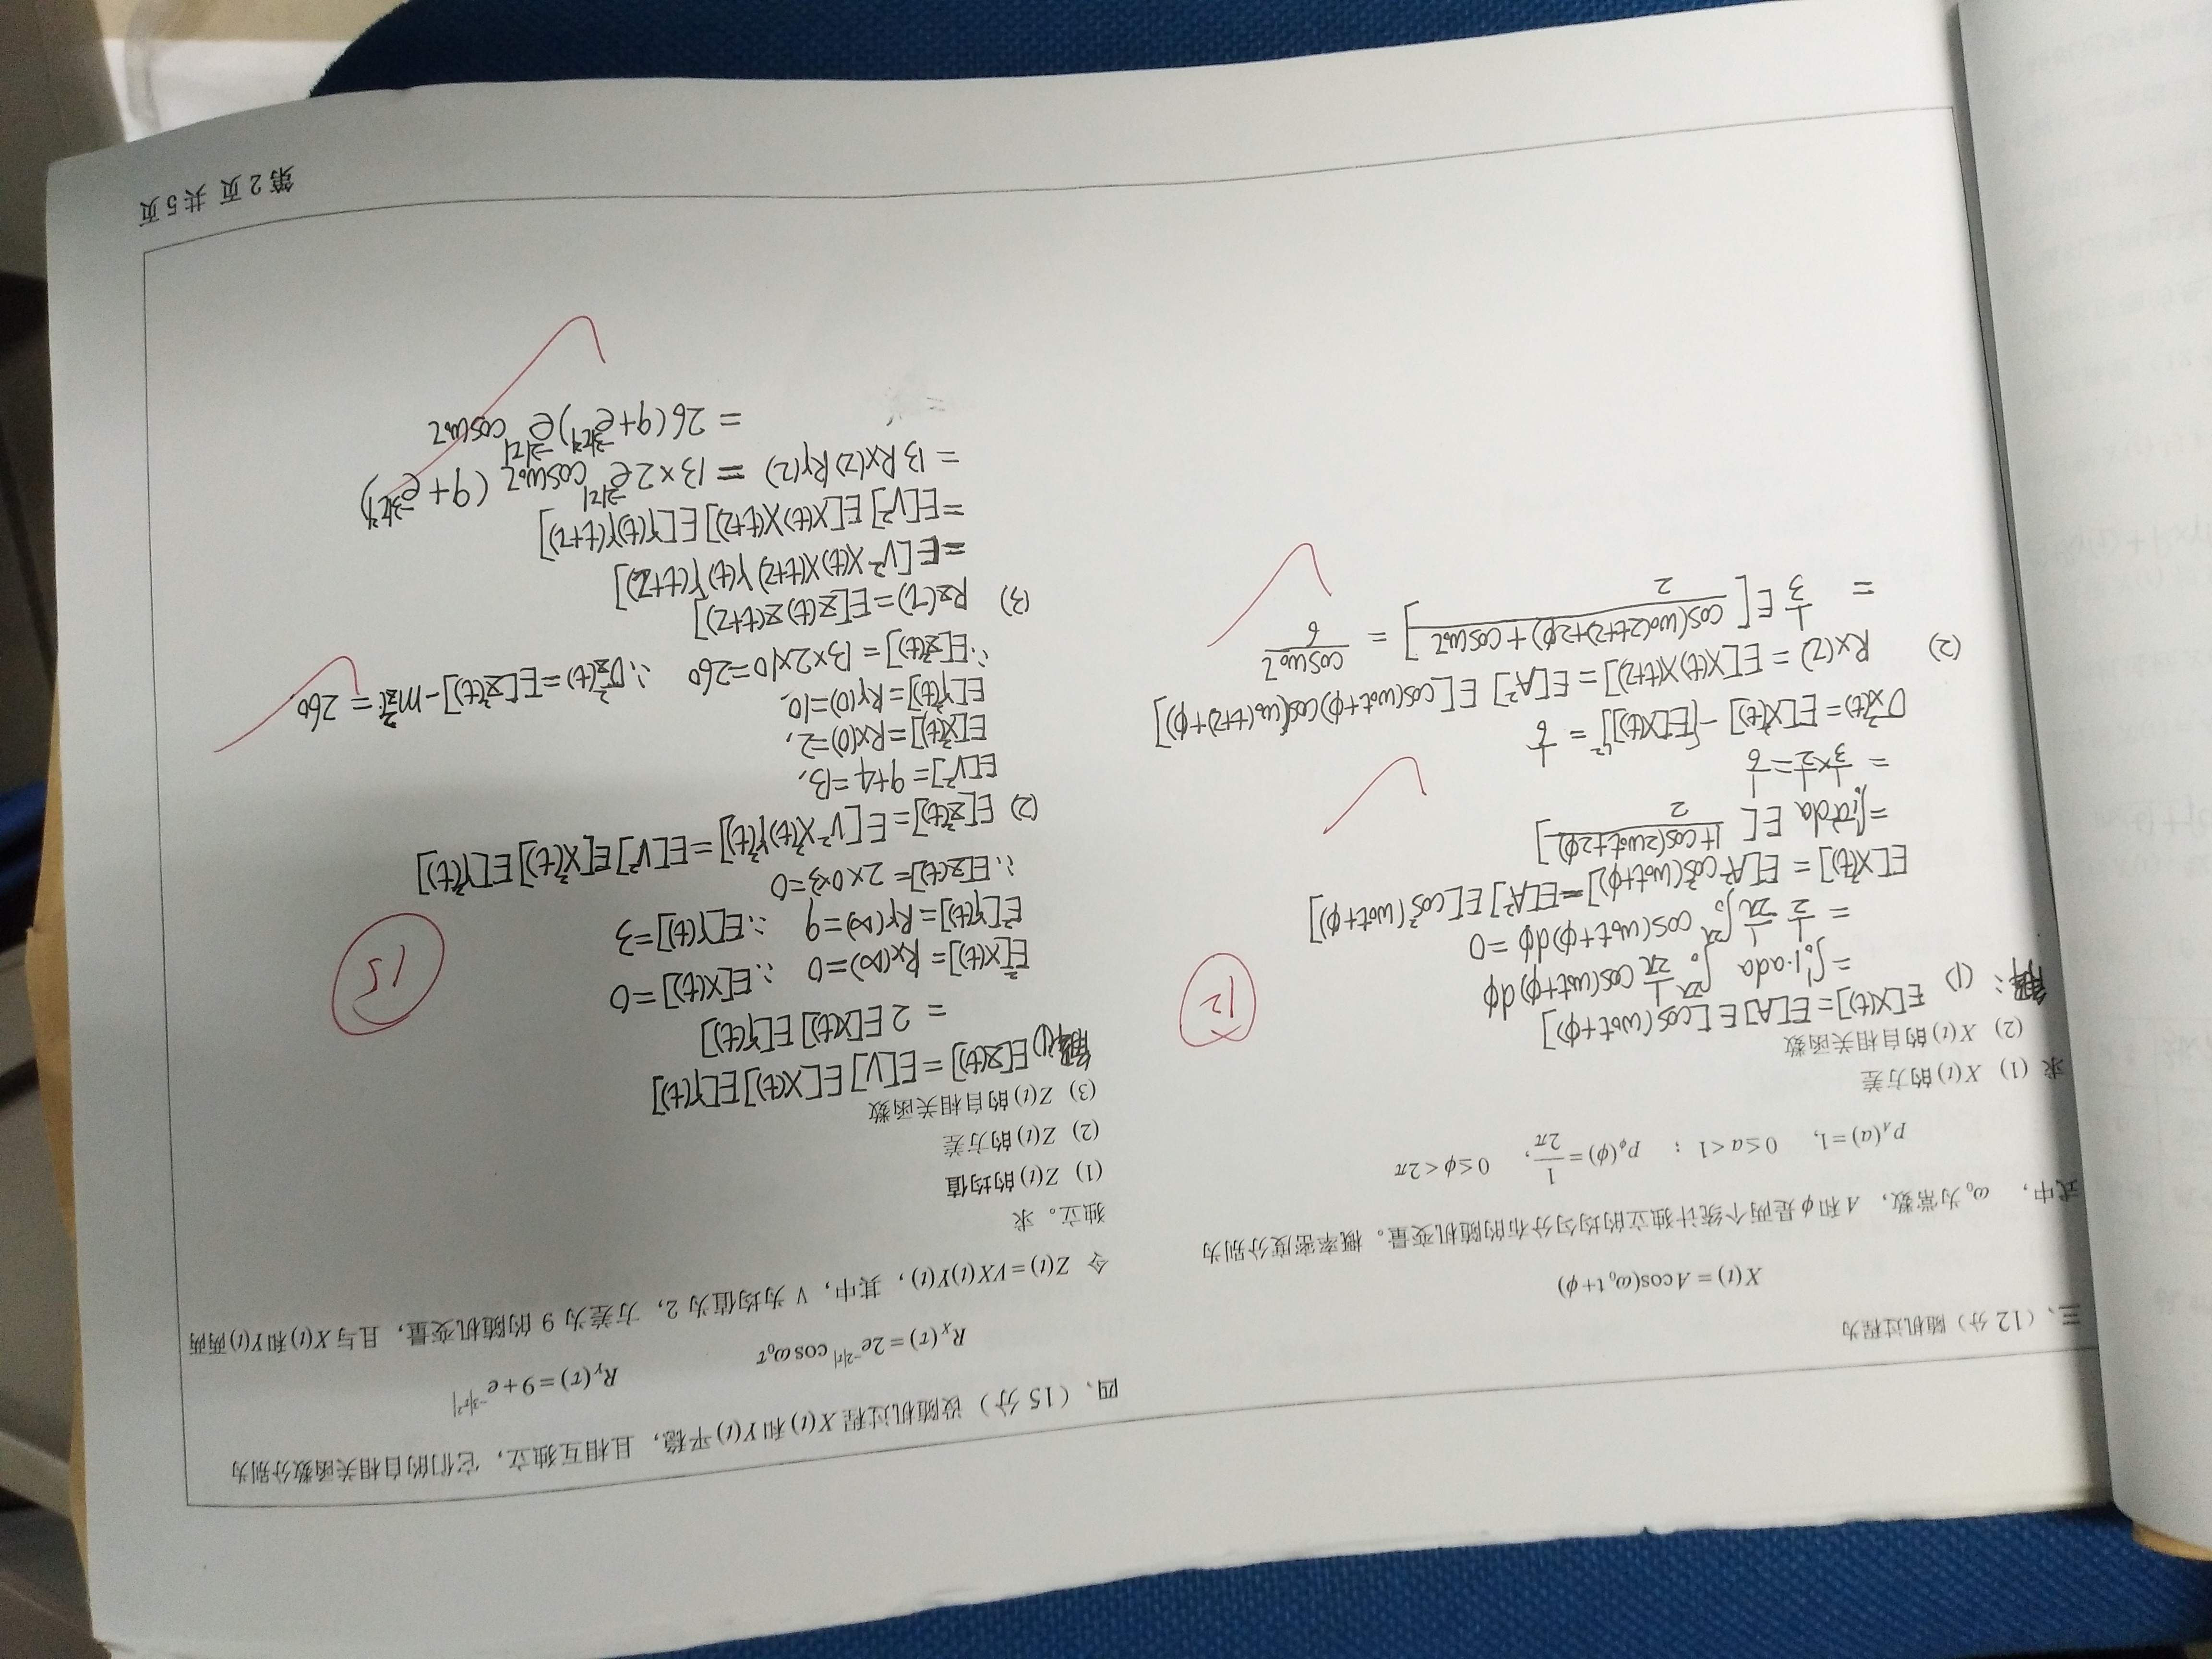 三、（12 分）随机过程为
X(t) = A cos(ω₀ t+ϕ)
式中， ω₀ 为常数， A 和 ϕ 是两个统计独立的均匀分布的随机变量。概率密度分别为
p_A(a) = 1, 0 ≤ a < 1 ; p_ϕ(ϕ) = 1/2π, 0 ≤ ϕ < 2π
求 (1) X(t) 的方差
(2) X(t) 的自相关函数
解： (1) E[X(t)] = E[A] E [cos(ω₀t+ϕ)]
= ∫₀¹ 1·a da ∫₀^{2π} 1/2π cos(ω₀t+ϕ) dϕ
= 1/2 · 1/2π ∫₀^{2π} cos(ω₀t+ϕ) dϕ = 0
E[X²(t)] = E[A² cos²(ω₀t+ϕ)] = E[A²] E[cos²(ω₀t+ϕ)]
= ∫₀¹ 1·a² da E[ (1+cos(2ω₀t+2ϕ))/2 ]
= 1/3 × 1/2 = 1/6
σ_X²(t) = E[X²(t)] - [E[X(t)]]² = 1/6
(2) R_X(τ) = E[X(t)X(t+τ)] = E[A²] E[cos(ω₀t+ϕ)cos(ω₀(t+τ)+ϕ)]
= 1/3 E[ (cos(ω₀(2t+τ)+2ϕ) + cosω₀τ)/2 ] = cosω₀τ/6
12
四、（15 分）设随机过程 X(t) 和 Y(t) 平稳，且相互独立，它们的自相关函数分别为
R_X(τ) = 2e^{-2|τ|} cos ω₀τ R_Y(τ) = 9 + e^{-3|τ²|}
令 Z(t) = VX(t)Y(t)，其中，V 为均值为 2，方差为 9 的随机变量，且与 X(t) 和 Y(t) 两两
独立。求
(1) Z(t) 的均值
(2) Z(t) 的方差
(3) Z(t) 的自相关函数
解(1) E[Z(t)] = E[V] E[X(t)] E[Y(t)]
= 2 E[X(t)] E[Y(t)]
E²[X(t)] = R_X(∞) = 0 ∴E[X(t)] = 0
E²[Y(t)] = R_Y(∞) = 9 ∴E[Y(t)] = 3
∴E[Z(t)] = 2×0×3 = 0
15
(2) E[Z²(t)] = E[V²X²(t)Y²(t)] = E[V²] E[X²(t)] E[Y²(t)]
E[V²] = 9+4 = 13,
E[X²(t)] = R_X(0) = 2,
E[Y²(t)] = R_Y(0) = 10,
∴E[Z²(t)] = 13×2×10 = 260 ∴σ_Z²(t) = E[Z²(t)] - m_Z² = 260.
(3) R_Z(τ) = E[Z(t) Z(t+τ)]
= E[V² X(t)X(t+τ) Y(t) Y(t+τ)]
= E[V²] E[X(t)X(t+τ)] E[Y(t)Y(t+τ)]
= 13 R_X(τ) R_Y(τ) = 13×2e^{-2|τ|} cosω₀τ (9+e^{-3|τ²|})
= 26(9+e^{-3|τ²|})e^{-2|τ|} cosω₀τ
第 2 页 共 5 页